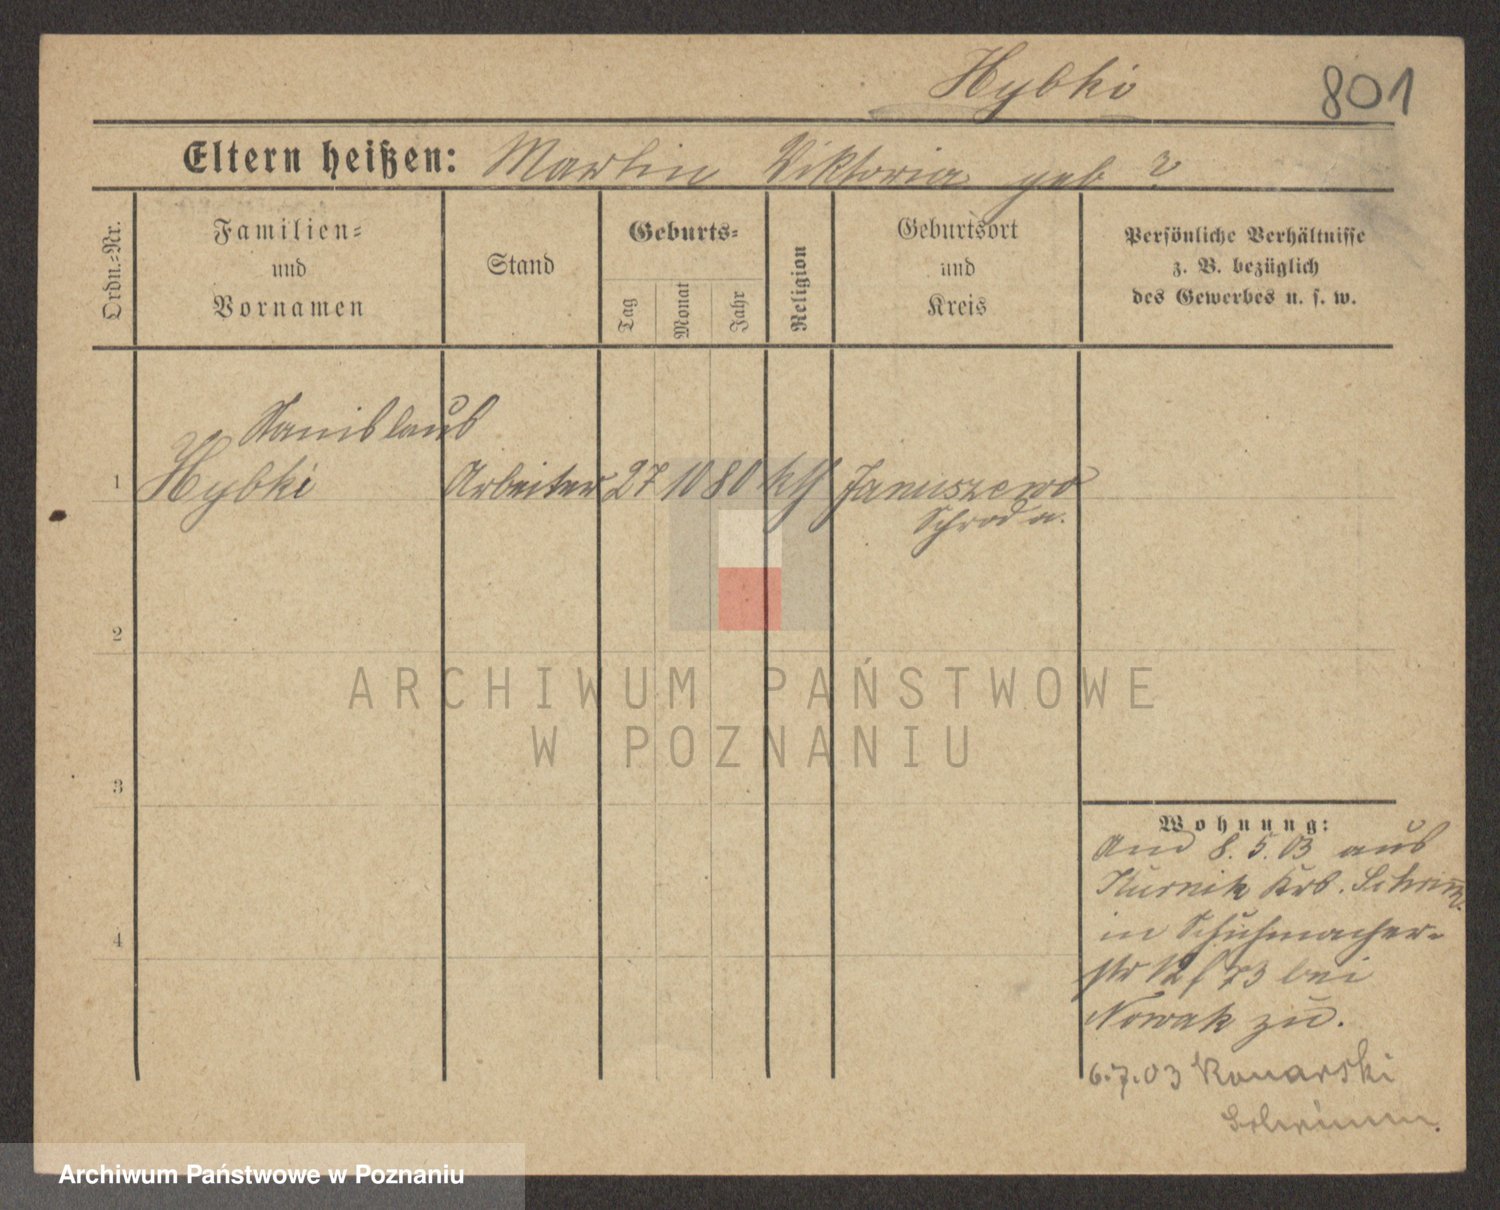 Hybki
801
Eltern heißen: Martin Viktoria geb ?
Ordn.-Nr.
Familien-
und
Vornamen
Stand
Geburts-
Tag
Monat
Jahr
Religion
Geburtsort
und
Kreis
Persönliche Verhältnisse
z. B. bezüglich
des Gewerbes u. s. w.
Stanislaus
1 Hybki Arbeiter 27 10 80 kth Januszewo
Schroda.
2
3
4
Wohnung:
8.5.03 aus
Kurnik Krs.
in Schuhmacher-
str 12 / 73 bei
Nowak zu.
6.7.03 Konarski
ARCHIWUM PAŃSTWOWE
W POZNANIU
Archiwum Państwowe w Poznaniu